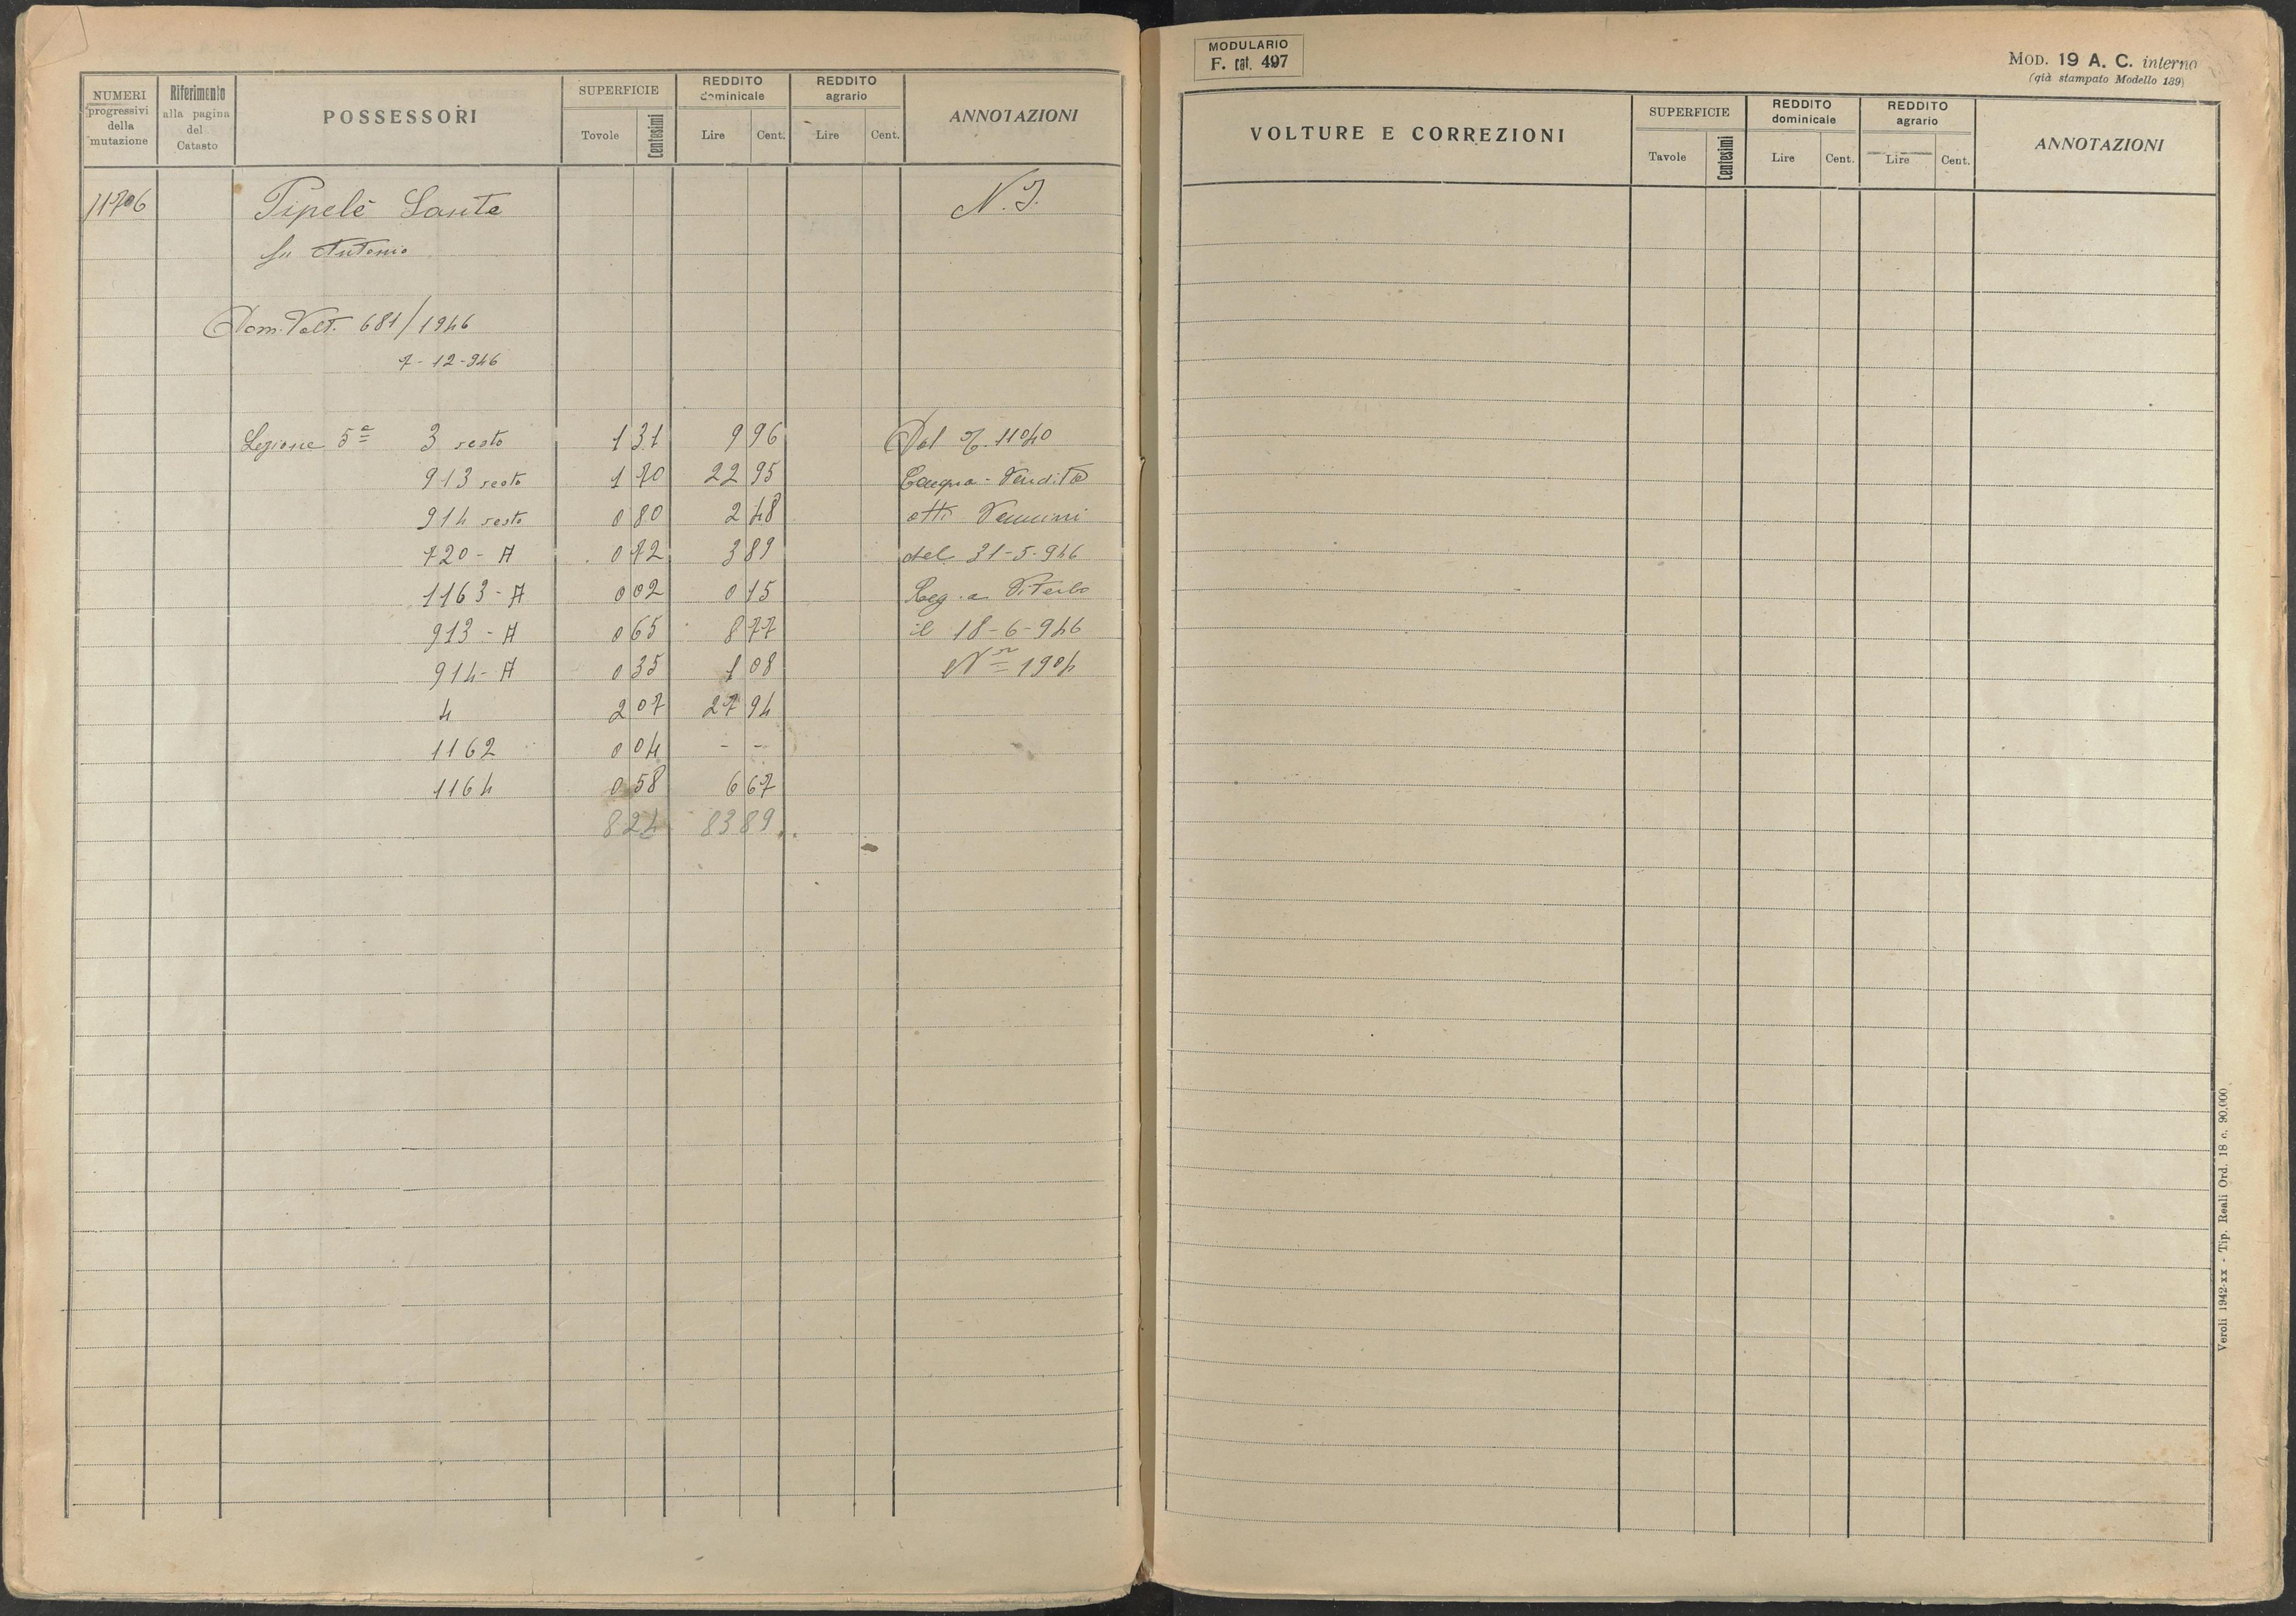 NUMERI progressivi della mutazione | Riferimento alla pagina del Catasto | POSSESSORI | SUPERFICIE Tovole Centesimi | REDDITO dominicale Lire Cent. | REDDITO agrario Lire Cent. | ANNOTAZIONI
11706 Pipelè Sante N. I.
fu Antonio
Dom. Volt. 681/1946
7-12-946
Sezione 5ª 3 resto 1 31 9 96 Dal N. 11040
913 resto 1 70 22 95 Compra-Vendita
914 resto 0 80 2 48 atti
720-A 0 72 3 89 del 31-5-946
1163-A 0 02 0 15 Reg. a Viterbo
913-A 0 65 8 77 il 18-6-946
914-A 0 35 1 08 Nº 1904
4 2 07 27 94
1162 0 04 - -
1164 0 58 6 67
8 24 83 89
MODULARIO
F. cat. 497
MOD. 19 A. C. interno
(già stampato Modello 189)
VOLTURE E CORREZIONI | SUPERFICIE Tavole Centesimi | REDDITO dominicale Lire Cent. | REDDITO agrario Lire Cent. | ANNOTAZIONI
Veroli 1942-XX - Tip. Reali Ord. 18 c. 90.000